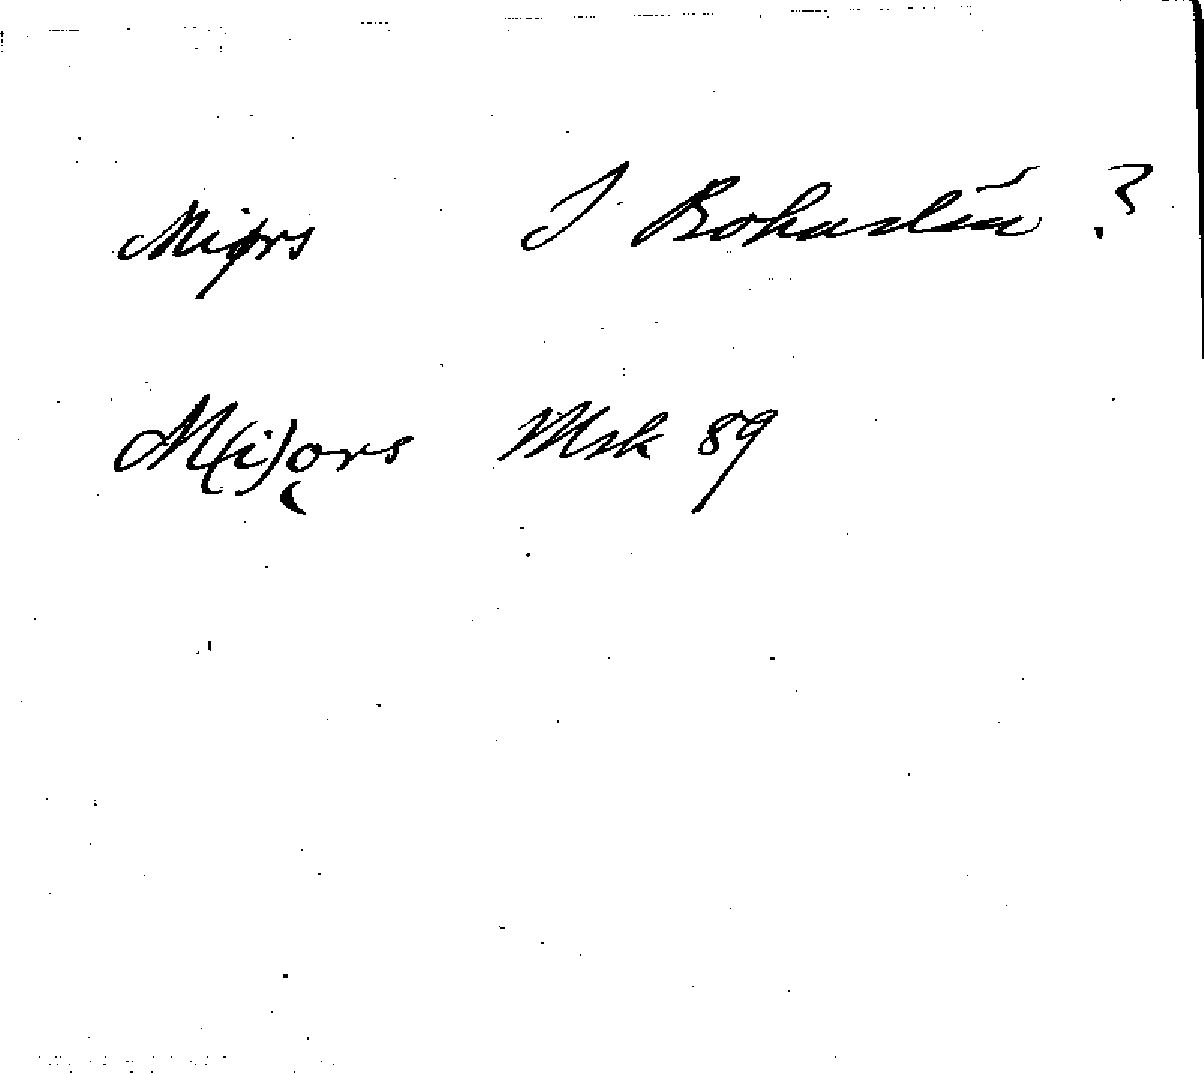 Miors I Bohuslän ?
M(i)ǫrs Msk 89